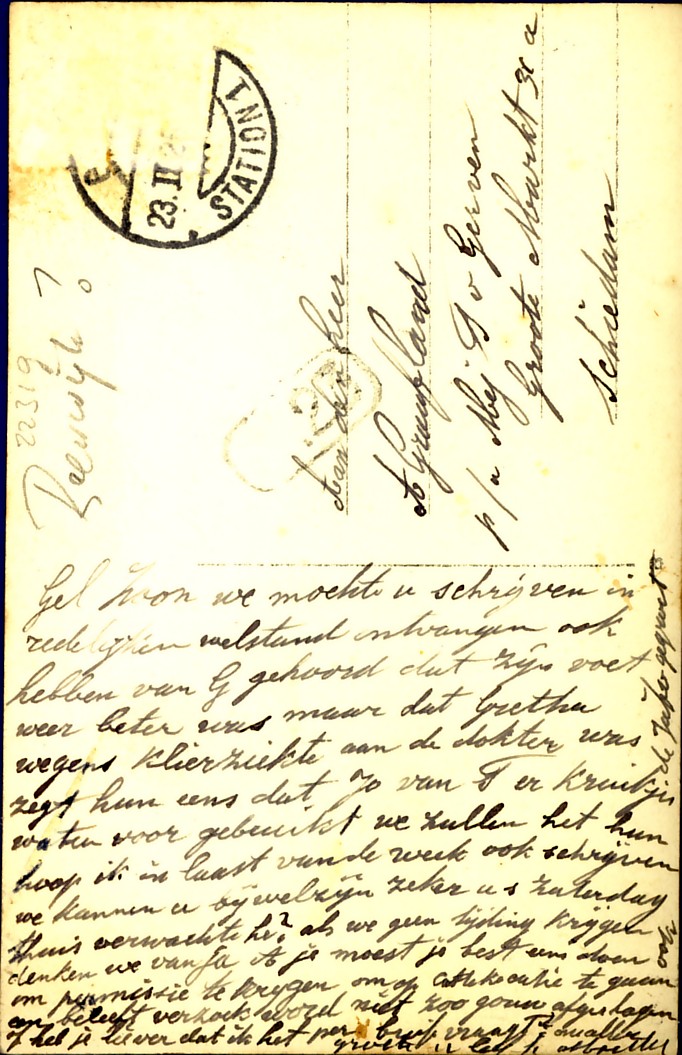 STATION 1
23. II
22319
Aan den heer
A Graafland
p/a Mej G v Gerven
Groote Markt 31 a
Schiedam
Gel Zoon we mochte u schrijven in
redelijken welstand ontvangen ook
hebben van G gehoord dat zijn voet
weer beter was maar dat Gretha
wegens klierziekte aan de dokter was
zegt hun eens dat Jo van T er Kruikjes
water voor gebruikt we zullen het hun
hoop ik in laast van de week ook schrijven
we kannen u bij welzijn zeker a s Zaterdag
thuis verwachte hé? als we geen tijding krijgen
denken we van ja A je moest je best eens doen
om permissie te krijgen om op te gaan
een beleeft verzoek word niet zoo gouw afgeslagen
of heb je liever dat ik het per brief vraagt